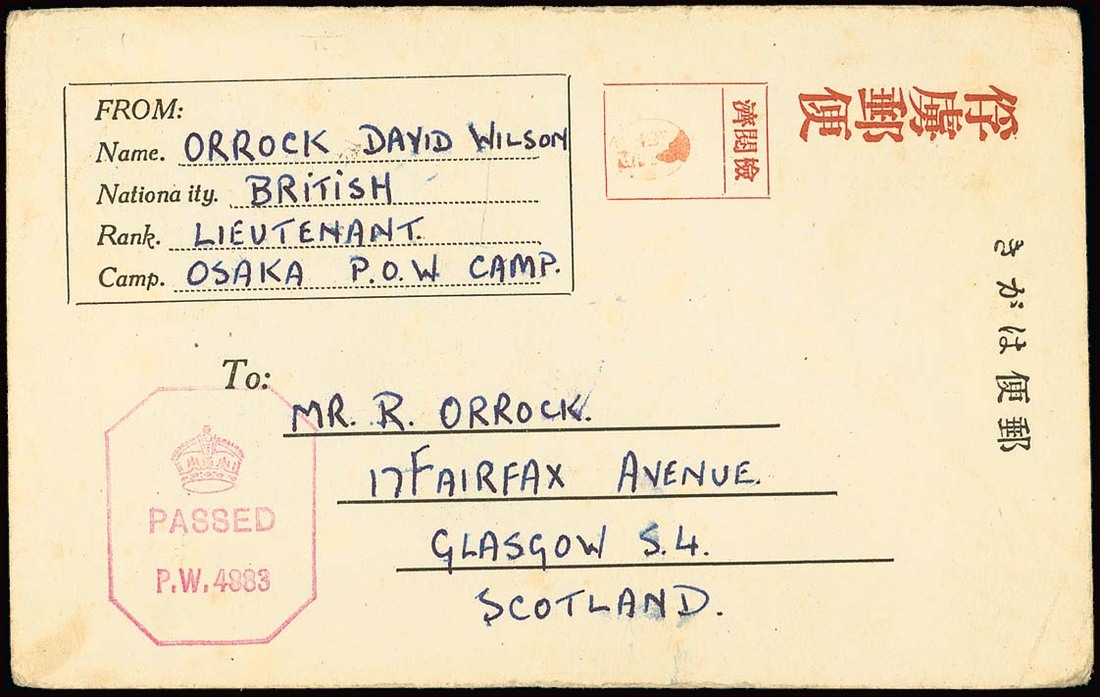 FROM:
Name. ORROCK DAVID WILSON
Nationa ity. BRITISH
Rank. LIEUTENANT.
Camp. OSAKA P.O.W CAMP.
檢閲濟
俘虜郵便
郵便はがき
To:
MR. R. ORROCK.
17 FAIRFAX AVENUE.
GLASGOW S.4.
SCOTLAND.
PASSED
P.W.4883